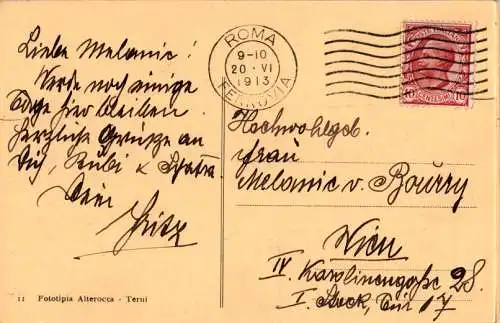 Liebe Melanie!
Werde noch einige
Tage hier bleiben.
Herzliche Grüsse an
Dich, Bubi &
Dein
Fritz
11 Fototipia Alterocca - Terni
ROMA
9-10
20 · VI
1913
FERROVIA
10 CENTESIMI 10
Hochwohlgeb.
Frau
Melanie v. Bourry
Wien
IV. Karolinengasse 28.
I. Stock, Tür 17